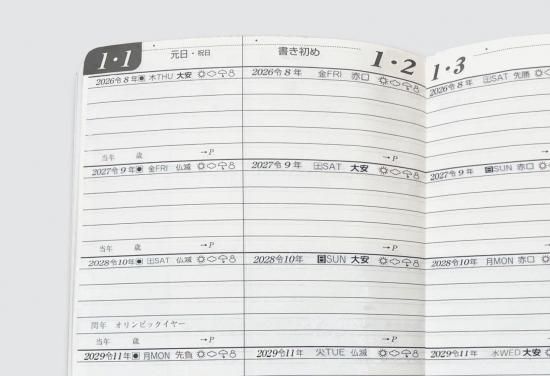 1・1 元日・祝日
書き初め 1・2
1・3
2026令8年 木THU 大安
2026令8年 金FRI 赤口
2026令8年 土SAT 先勝
当年 歳 →P
2027令9年 金FRI 仏滅
2027令9年 土SAT 大安
2027令9年 日SUN 赤口
当年 歳 →P
2028令10年 土SAT 仏滅
2028令10年 日SUN 大安
2028令10年 月MON 赤口
閏年 オリンピックイヤー
当年 歳 →P
2029令11年 月MON 先負
2029令11年 火TUE 仏滅
2029令11年 水WED 大安